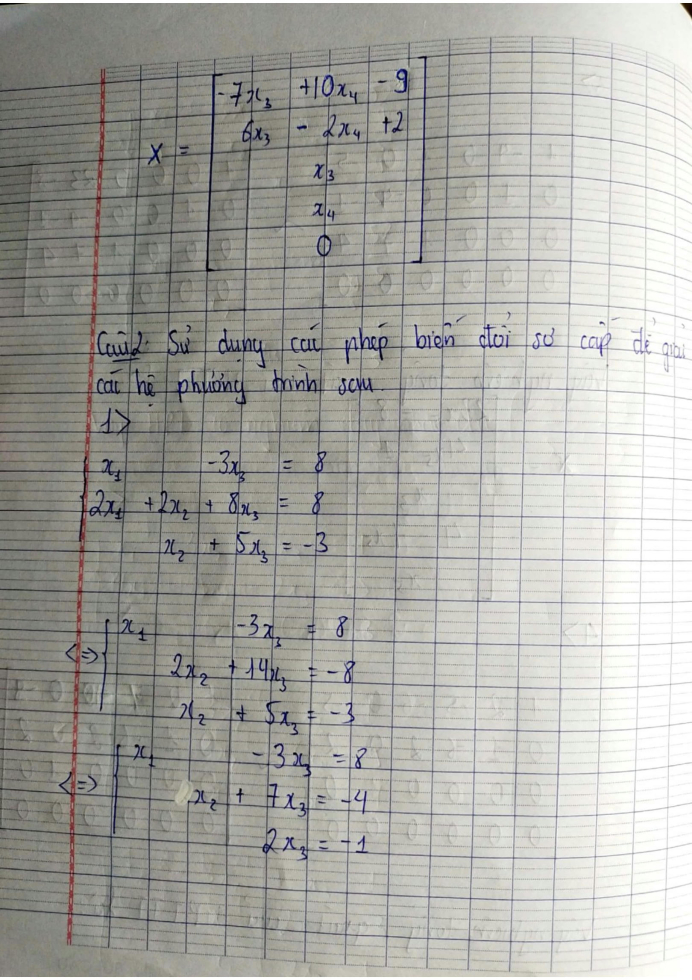 -7x₃ +10x₄ - 9
6x₃ - 2x₄ +2
X =
x₃
x₄
0
Câu 2: Sử dụng các phép biến đổi sơ cấp để giải
các hệ phương trình sau.
1>
x₁ -3x₃ = 8
2x₁ +2x₂ + 8x₃ = 8
x₂ + 5x₃ = -3
x₁ -3x₃ = 8
<=> 2x₂ +14x₃ = -8
x₂ + 5x₃ = -3
x₁ - 3x₃ = 8
<=> x₂ + 7x₃ = -4
2x₃ = -1